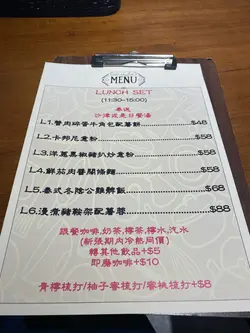 MENU
LUNCH SET
(11:30-15:00)
奉送
沙津或是日餐湯
L1.蟹肉碎蛋牛角包配薯餅 $48
L2.卡邦尼意粉 $58
L3.洋蔥黑椒豬扒炒意粉 $58
L4.鮮茄肉醬闊條麵 $58
L5.泰式冬陰公雞髀飯 $68
L6.慢煮豬鞍架配薯蓉 $88
跟餐咖啡,奶茶,檸茶,檸水,汽水
(新張期內冷熱同價)
轉其他飲品+$5
即磨咖啡+$10
青檸梳打/柚子蜜梳打/蜜桃梳打+$8